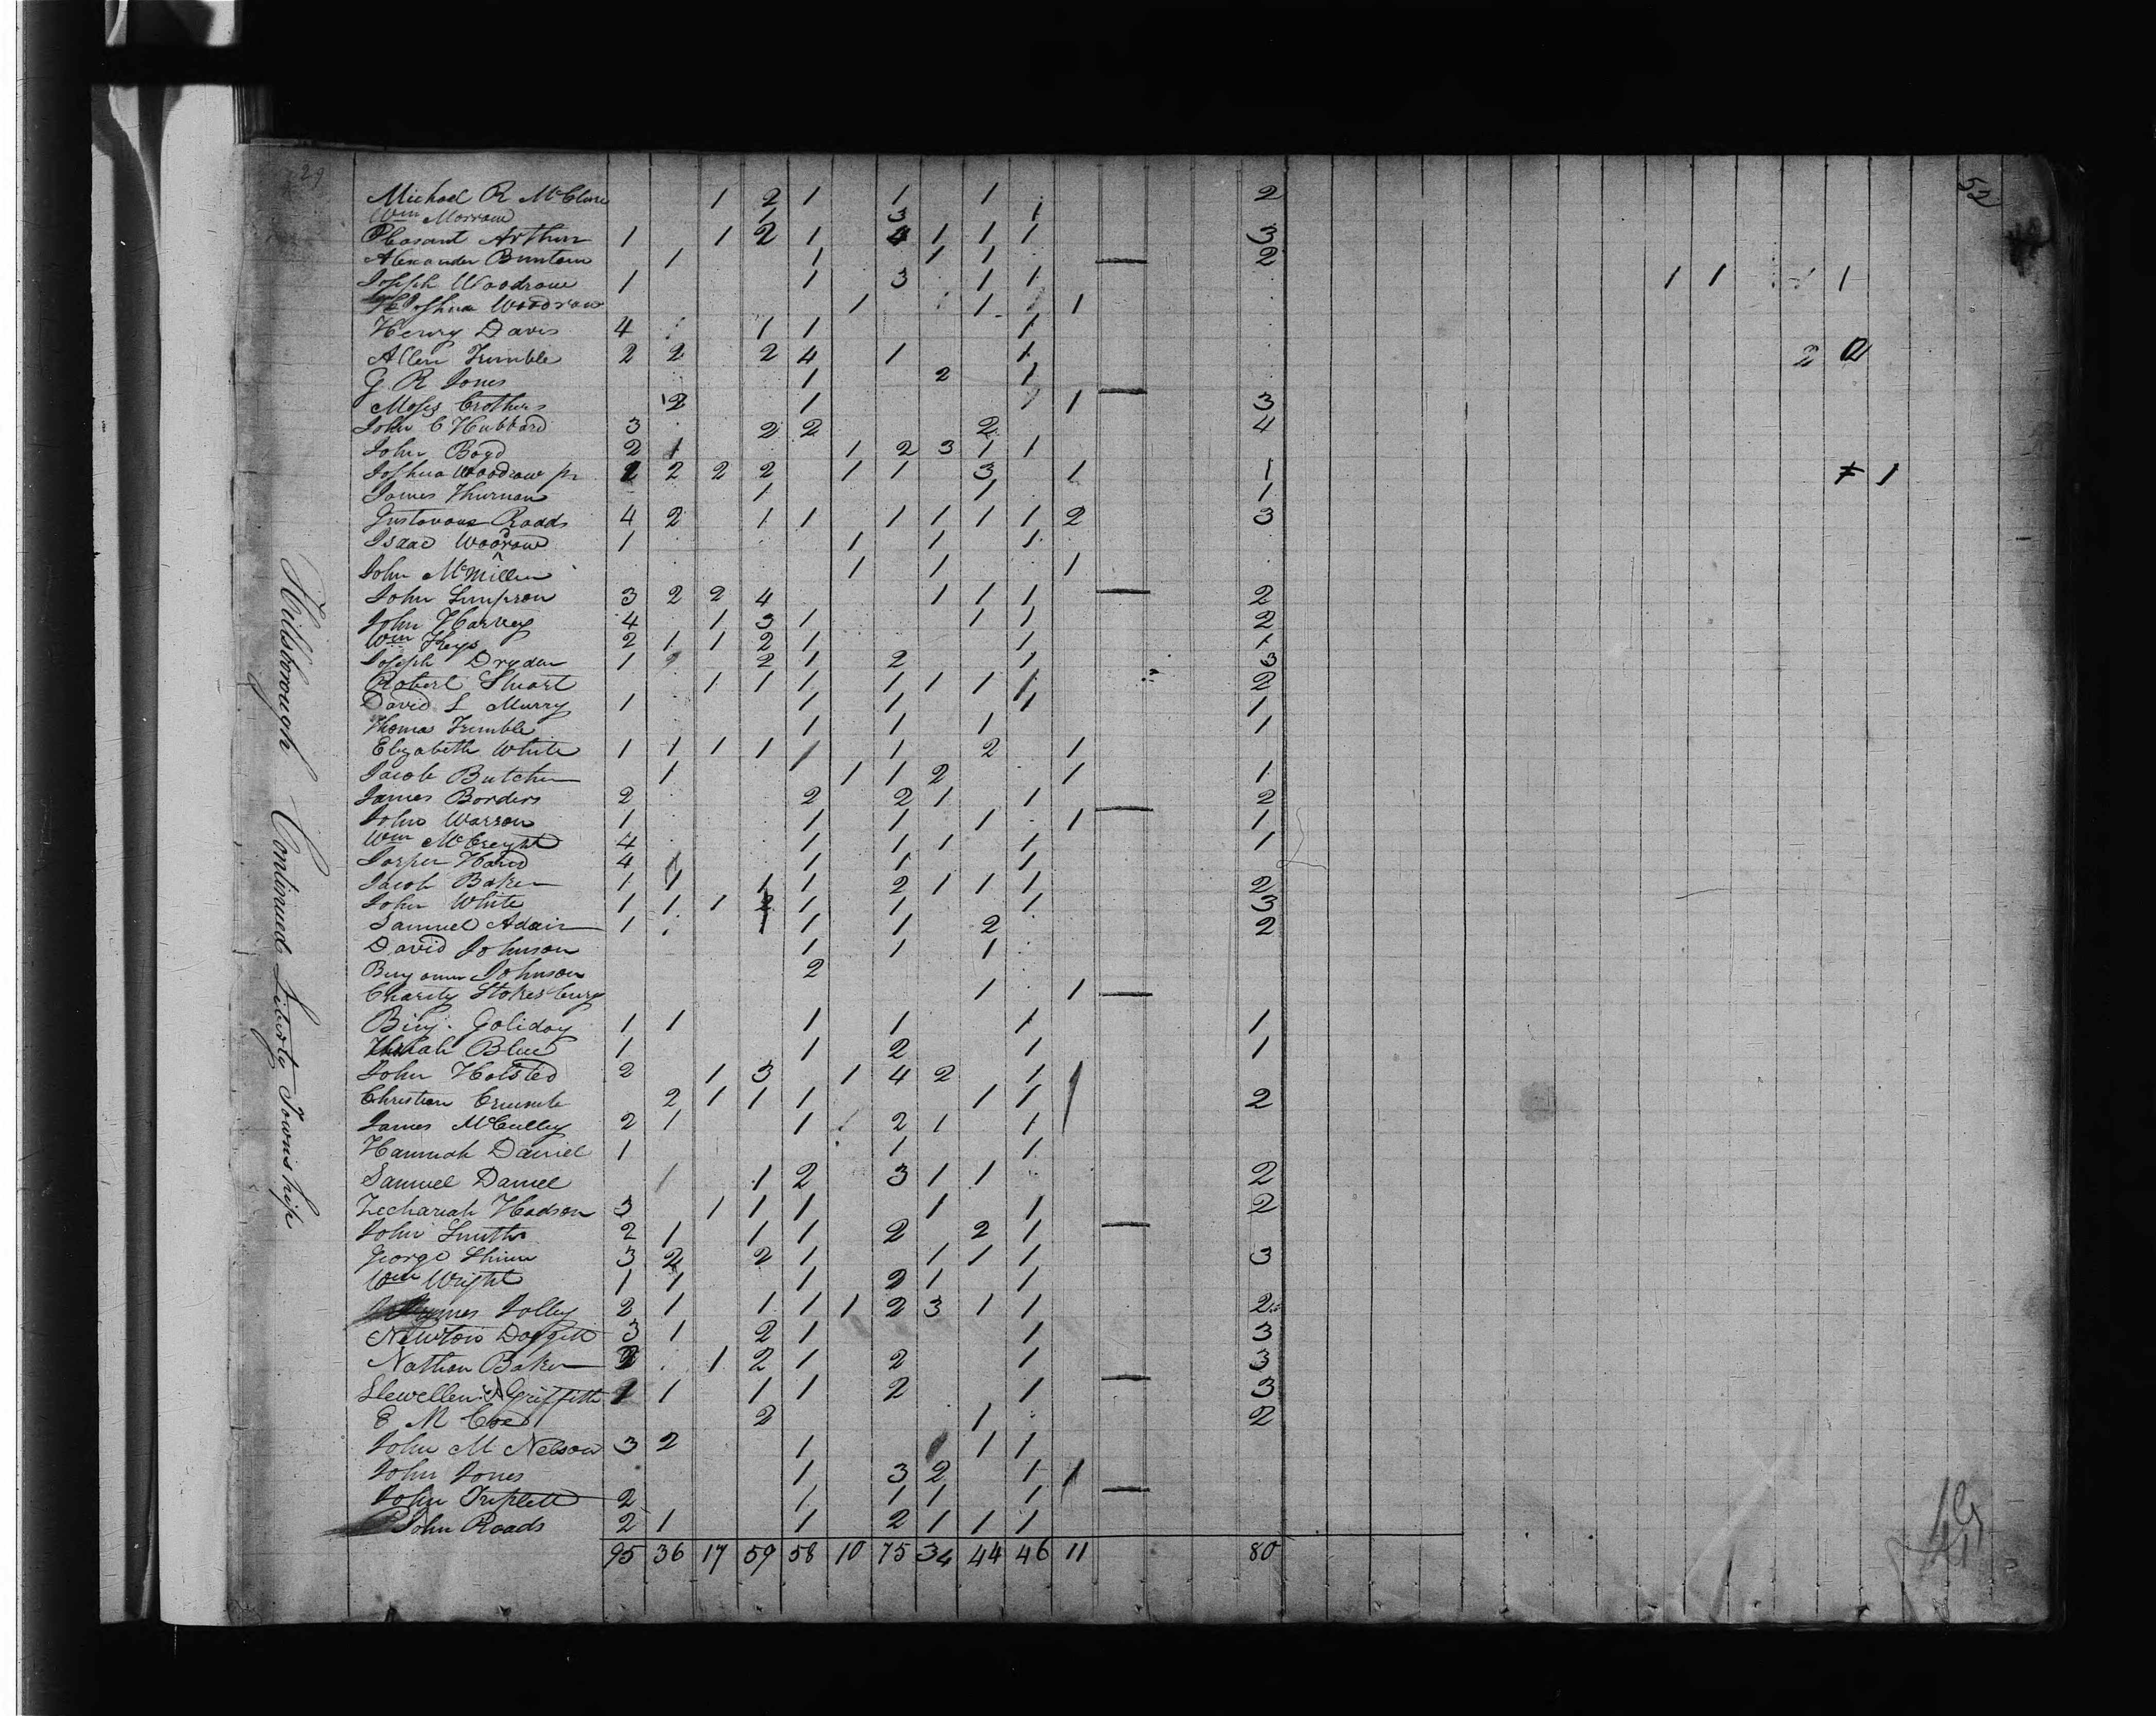 29
52
Hillsborough Continued Liberty Township
Michael R McClure 1 2 1 1 1 2
Wm Morrow 1 3 1
Pleasant Arthur 1 1 2 1 4 1 1 1 3
Alexander Buntain 1 1 1 1 — 2
Joseph Woodrow 1 1 3 1 1 1 1 1 1
Joshua Woodrow 1 1 1 1
Henry Davis 4 1 1 1
Allen Trimble 2 2 2 4 1 1 2 2
G. R Jones 1 2 1
Moses Crothers 2 1 1 1 — 3
John C Hubbard 3 2 2 2 4
John Boyd 2 1 1 2 3 1 1
Joshua Woodrow jr 2 2 2 2 1 1 3 1 1 1
James Thurman 1 1 1
Gustavous Roads 4 2 1 1 1 1 1 1 2 3
Isaac Woodrow 1 1 1 1
John McMillen 1 1 1
John Simpson 3 2 2 4 1 1 1 — 2
John Harvey 4 1 3 1 1 1 2
Wm Keys 2 1 1 2 1 1 1
Joseph Dryden 1 2 1 2 1 3
Robert Stuart 1 1 1 1 1 1 1 2
David L Murry 1 1 1 1 1
Thomas Trimble 1 1 1 1
Elizabeth White 1 1 1 1 1 1 2 1
Jacob Butcher 1 1 1 2 1 1
James Borders 2 2 2 1 1 2
John Warson 1 1 1 1 1 — 1
Wm McCreight 4 1 1 1 1 1
Jasper Hand 4 1 1 1 1
Jacob Baker 1 1 1 1 2 1 1 1 2
John White 1 1 1 2 1 1 1 3
Samuel Adair 1 1 1 1 2 2
David Johnson 1 1 1
Benjamin Johnson 2
Charity Stokesbury 1 1 —
Binj. Goliday 1 1 1 1 1 1
Blue 1 1 2 1 1
John Holsted 2 1 3 1 4 2 1
Christian Crumb 2 1 1 1 1 1 1 2
James McCulley 2 1 1 2 1 1
Hannah Daniel 1 1 1
Samuel Daniel 1 1 2 3 1 1 2
Zechariah Hadson 3 1 1 1 1 1 2
John Smith 2 1 1 1 2 2 1 —
George Shinn 3 2 2 1 1 1 1 3
Wm Wright 1 1 1 2 1 1
James Jolley 2 1 1 1 1 2 3 1 1 2
Newton Doggett 3 1 2 1 1 3
Nathan Baker 2 1 2 1 2 1 3
Llewellen Griffith 1 1 1 1 2 1 — 3
E M Coe 2 1 2
John M Nelson 3 2 1 1 1
John Jones 1 3 2 1 1
John Triplett 2 1 1 1 1 —
John Roads 2 1 1 2 1 1 1
95 36 17 59 58 10 75 34 44 46 11 80